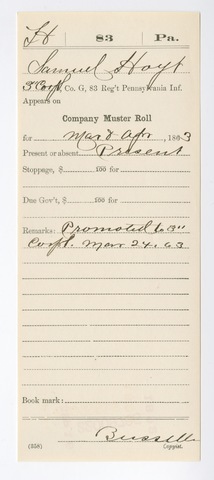 H 83 Pa.
Samuel Hoyt
3" Corpl, Co. G, 83 Reg't Pennsylvania Inf.
Appears on
Company Muster Roll
for Mar & Apr, 1863
Present or absent Present
Stoppage, $ 100 for
Due Gov't, $ 100 for
Remarks: Promoted to 3"
Corpl. Mar 24. 63
Book mark:
Bussell
(358) Copyist.